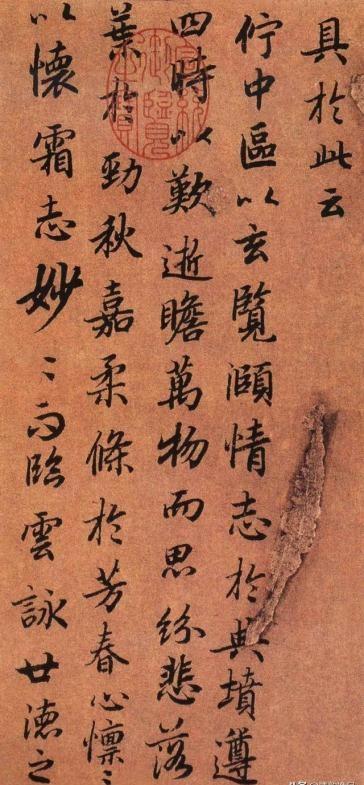 具於此云
佇中區以玄覽頤情志於典墳遵
四時以歎逝瞻萬物而思紛悲落
葉於勁秋嘉柔條於芳春心懍〻
以懷霜志妙〻而臨雲詠世德之